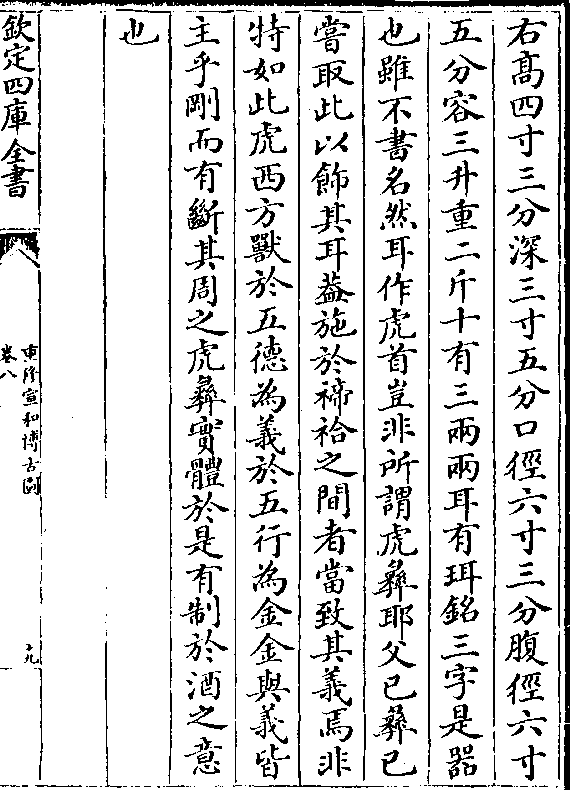 右髙四寸三分深三寸五分口徑六寸三分腹徑六寸
五分容三升重二斤十有三兩兩耳有珥銘三字是器
也雖不書名然耳作虎首豈非所謂虎彞耶父己彞已
嘗取此以飾其耳葢施於禘祫之間者當致其義焉非
特如此虎西方獸於五徳為義於五行為金金與義皆
主乎剛而有斷其周之虎彞實體於是有制於酒之意
也
欽定四庫全書
重修宣和博古圖
卷八
十九